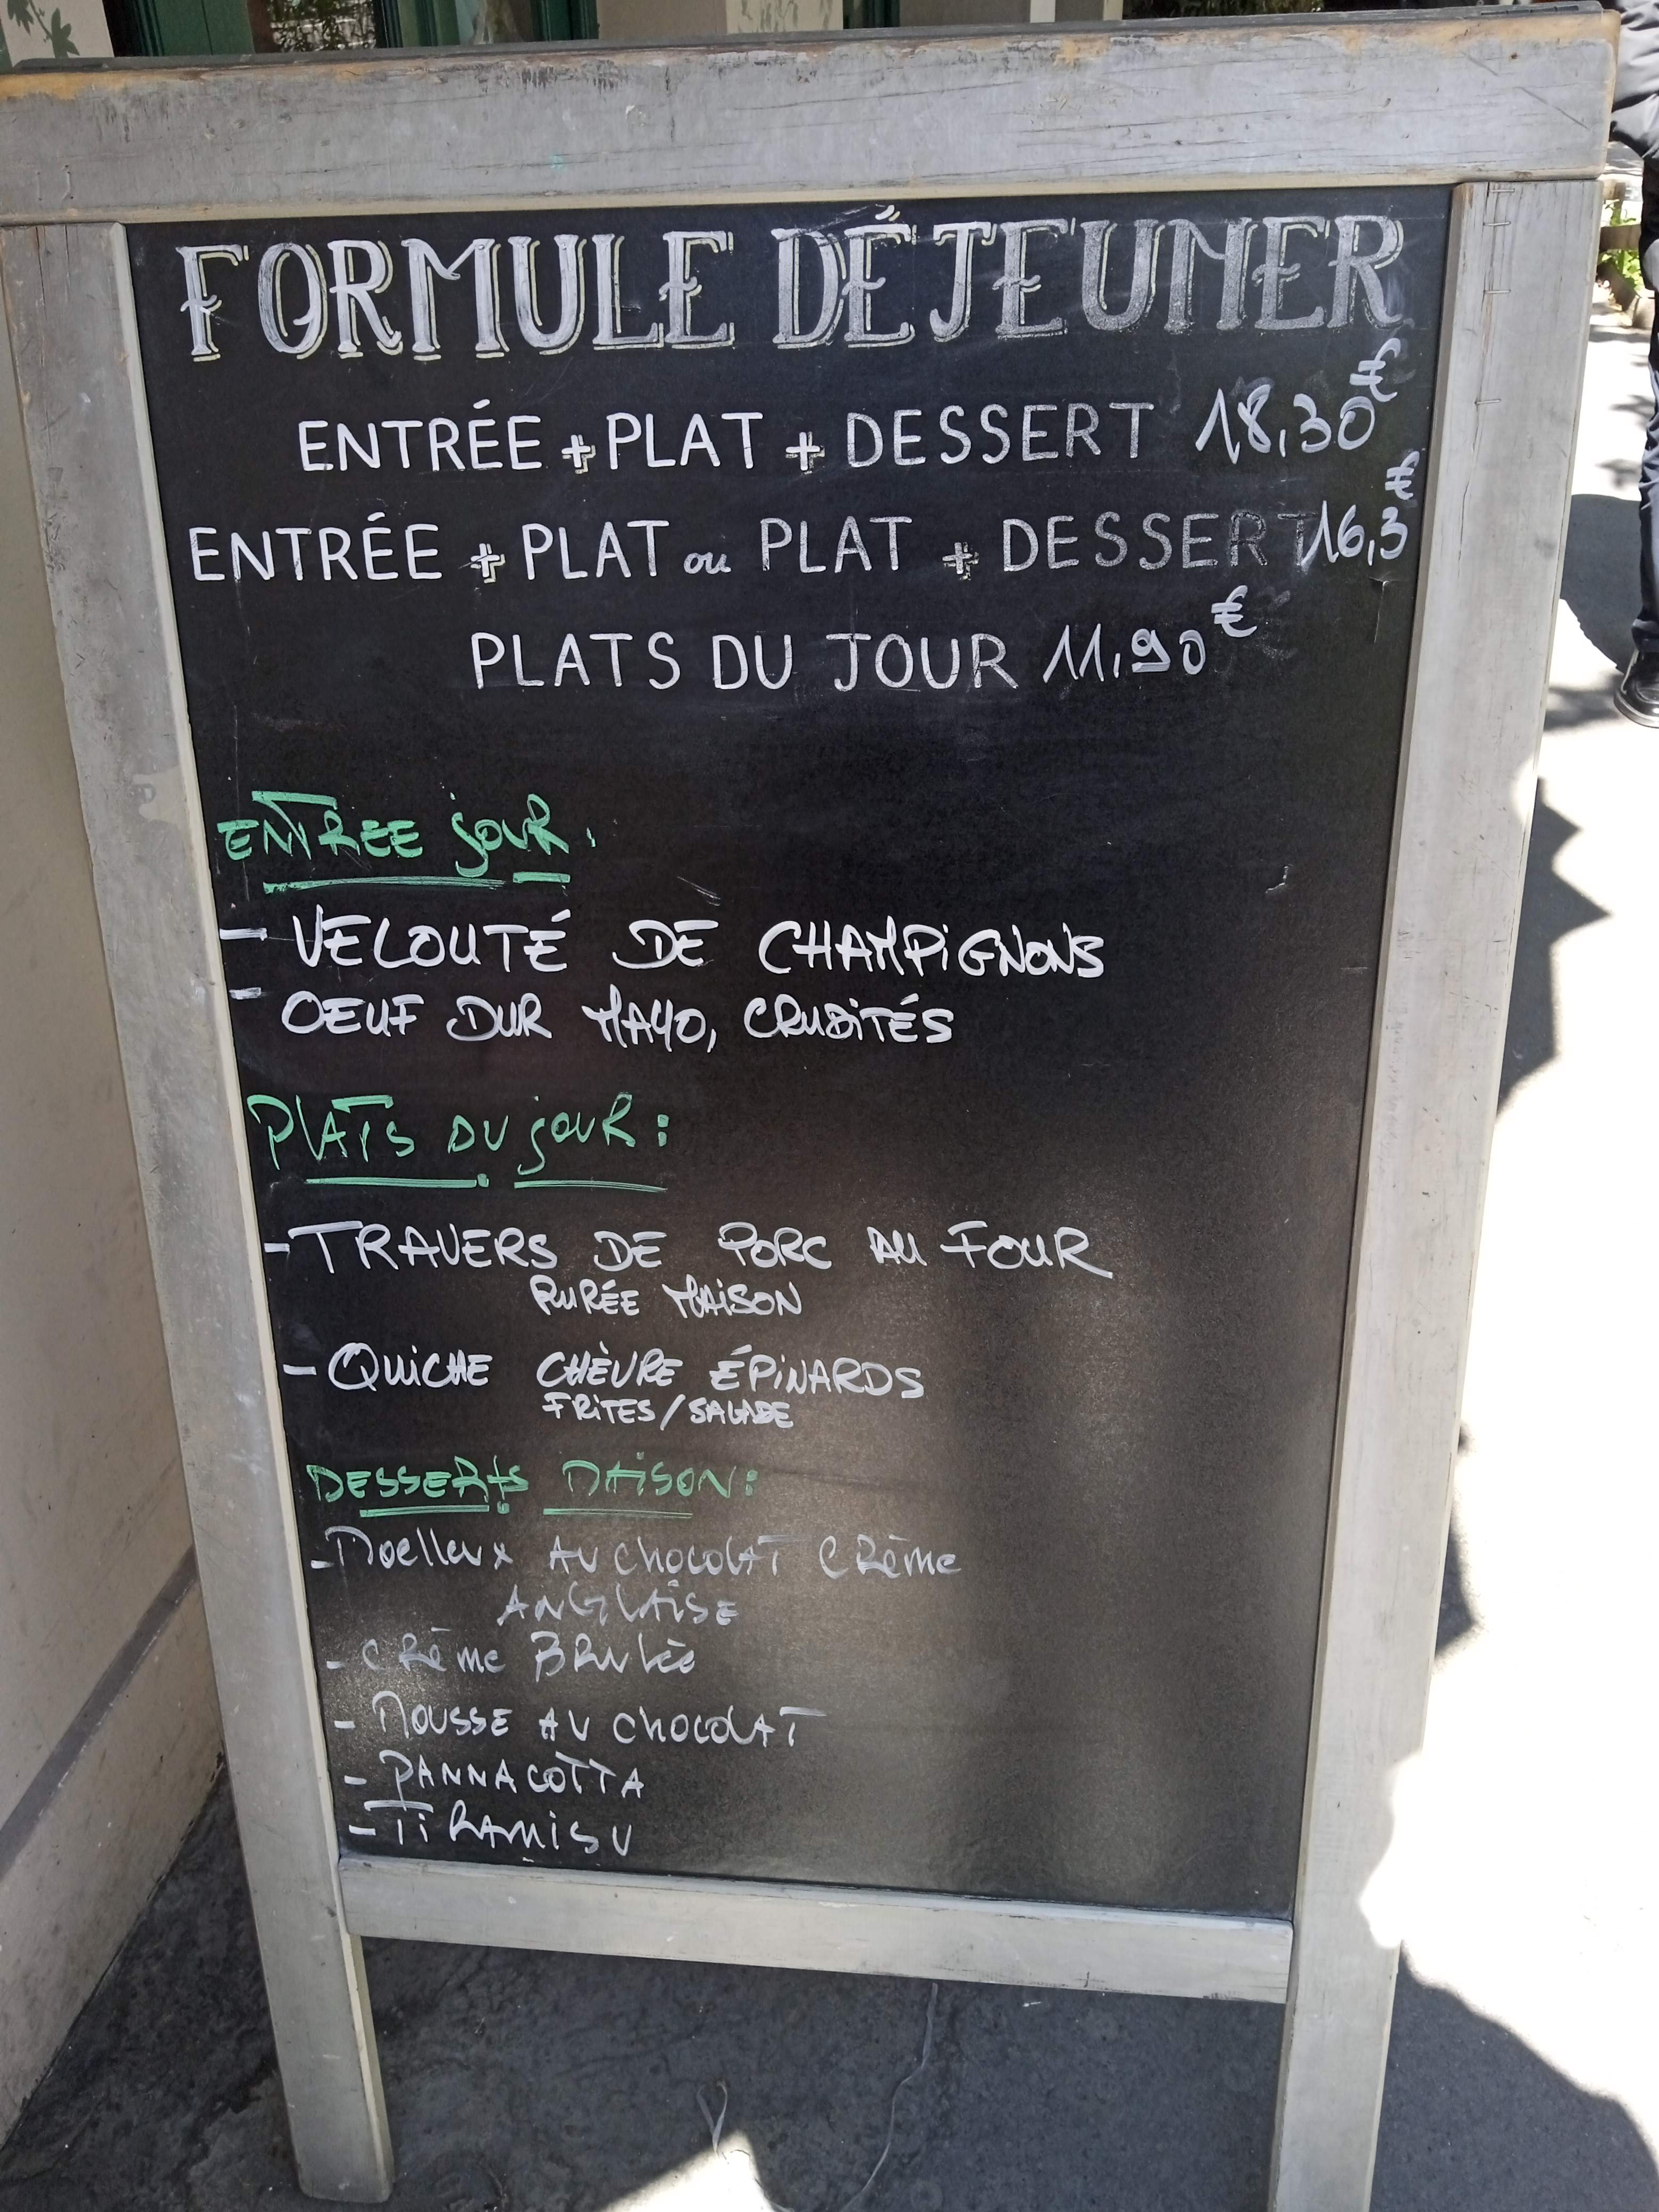 FORMULE DÉJEUNER
ENTRÉE + PLAT + DESSERT 18,30€
ENTRÉE + PLAT ou PLAT + DESSERT 16,3€
PLATS DU JOUR 11,90€
ENTREE JOUR.
- VELOUTÉ DE CHAMPIGNONS
- OEUF DUR MAYO, CRUDITÉS
PLATS DU JOUR:
- TRAVERS DE PORC AU FOUR
PURÉE MAISON
- QUICHE CHÈVRE ÉPINARDS
FRITES/SALADE
DESSERTS MAISON:
- Moelleux AU chocolAT CRème
ANGLAISE
- CRème BRuléè
- MOUSSE AU chocolAT
- PANNACOTTA
- TiRAMISU